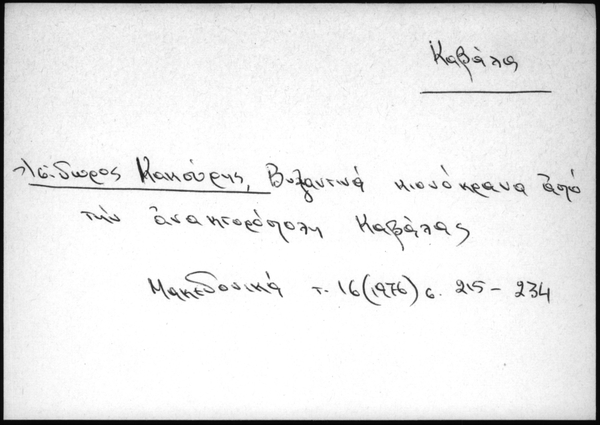 Καβάλα
Ἰσίδωρος Κακούρης, Βυζαντινά κιονόκρανα ἀπό
τήν ἀνακτορόπολη Καβάλας
Μακεδονικά τ. 16 (1976) σ. 215 – 234